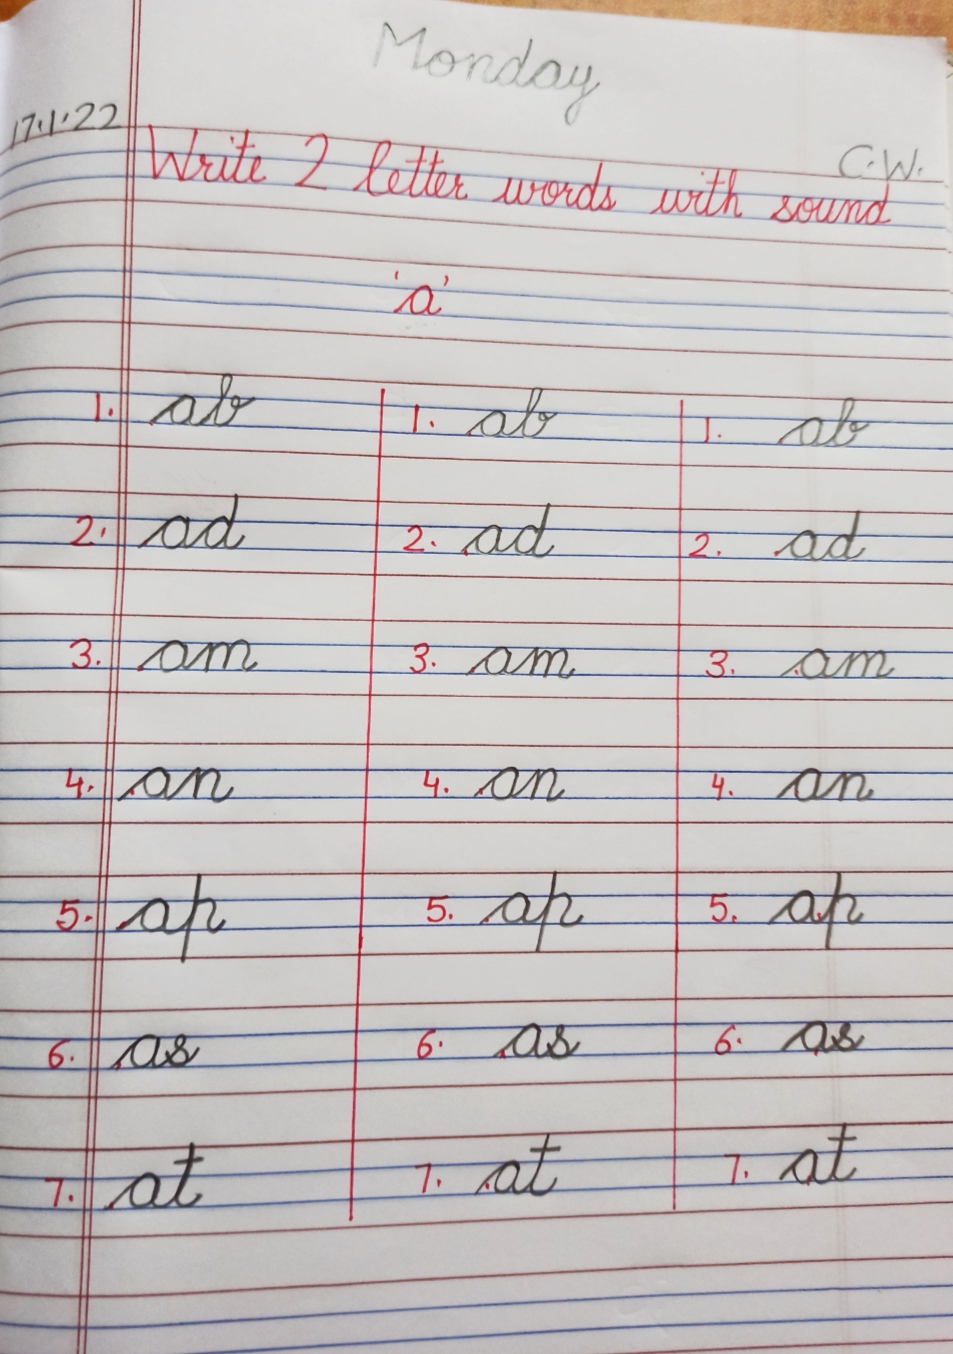 Monday
17.1.22
C.W.
Write 2 letter words with sound
'a'
1. ab 1. ab 1. ab
2. ad 2. ad 2. ad
3. am 3. am 3. am
4. an 4. an 4. an
5. ap 5. ap 5. ap
6. as 6. as 6. as
7. at 7. at 7. at